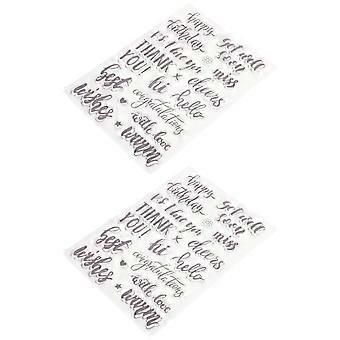 happy
birthday
get well
soon
yes I love you
miss
THANK
YOU!
x
cheers
hi
hello
best
wishes
congratulations
with love
warm
happy
birthday
get well
soon
yes I love you
miss
THANK
YOU!
x
cheers
hi
hello
best
wishes
congratulations
with love
warm